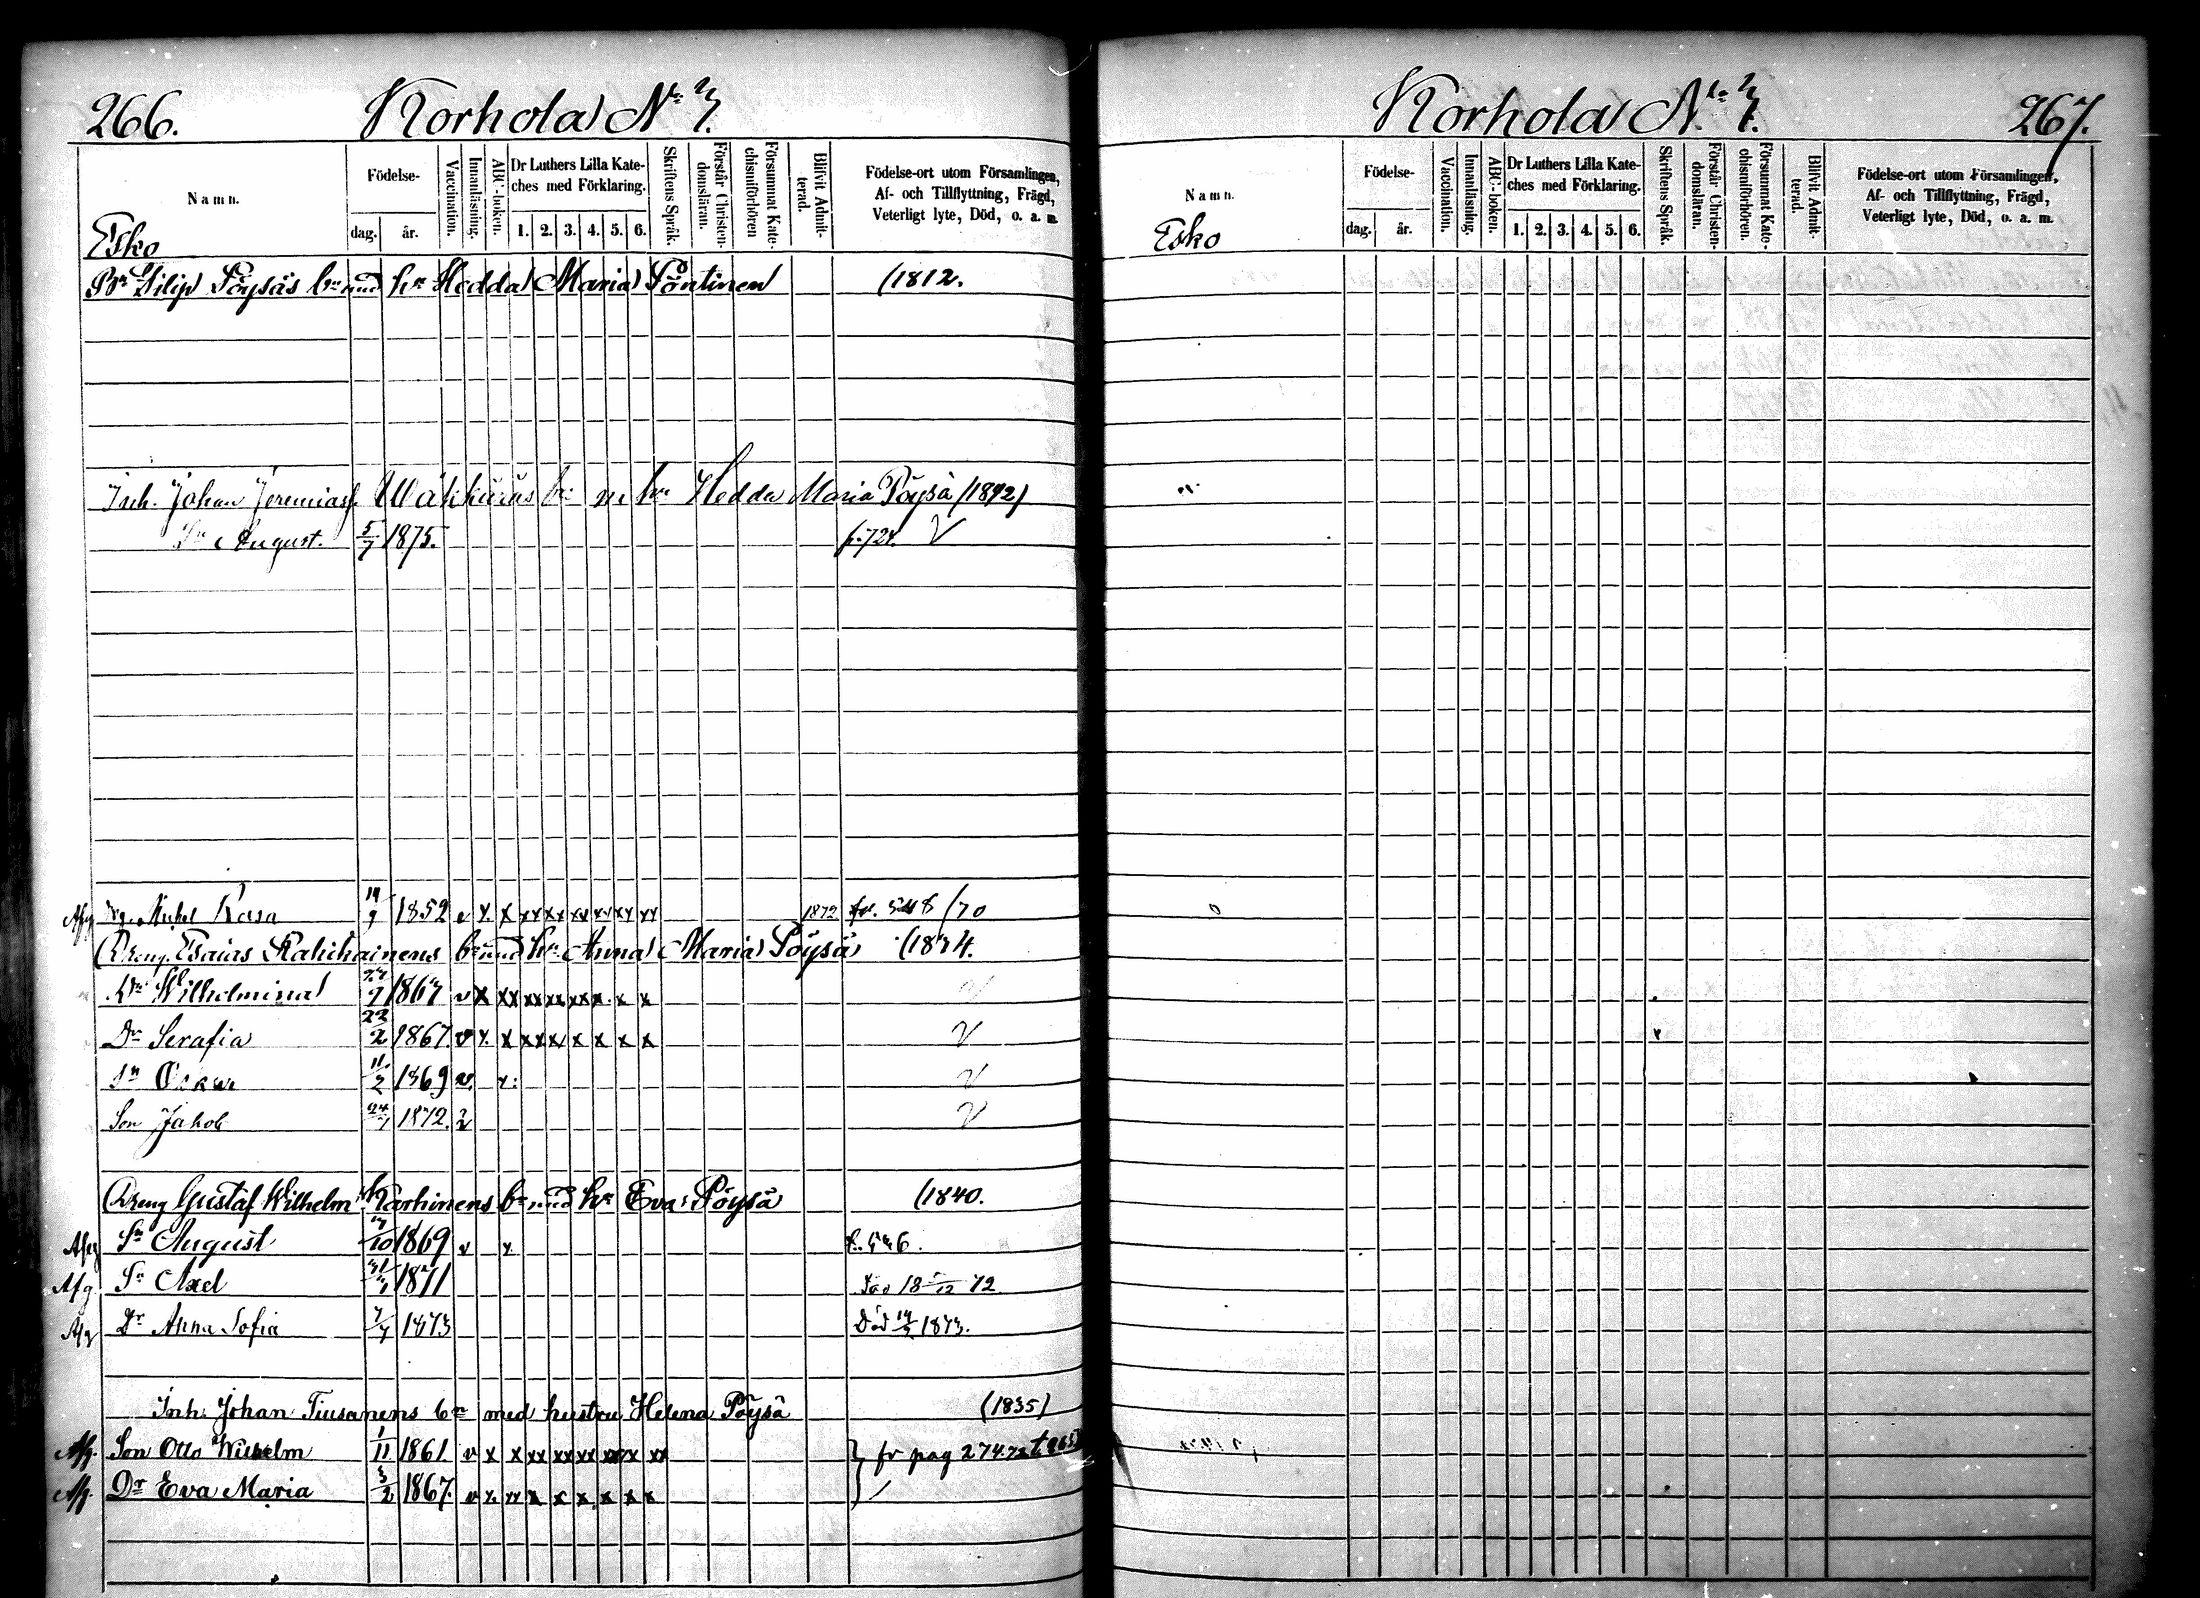 266. Korhola No 7.
Namn.
Födelse-
dag. år.
Vaccination.
Innanläsning.
ABC-boken.
Dr Luthers Lilla Kate-
ches med Förklaring.
1. 2. 3. 4. 5. 6.
Skriftens Språk.
Förstår Christen-
domsläran.
Försummat Kate-
chismiförhören
Blifvit Admit-
terad.
Födelse-ort utom Församlingen,
Af- och Tillflyttning, Frägd,
Veterligt lyte, Död, o. a. m.
Esko
Filip Pöysäs bn med hu Hedda Maria Pöntinen (1812.
Inh. Johan Jeremiasf. bn m hu Hedda Maria Pöysä (1842)
Sn August. 5/7 1875. V
Afg Michel Rasa 1852 v x x xx xx xx xx xx xx 1872 /70
Dreng. Esaias Kakikainens bn med hu Anna Maria Pöysä (1834.
Dr Wilhelmina v x xx xx xx xx x x x
Dr Serafia 22/2 1867 v x x xx xx x x x x V
Sn Oskar 1869 v x V
Son Jakob 1872. v V
Dreng Gustaf Wilhelm Karhinens bn med hu Eva Pöysä (1840.
Afg Sn August 1869 v x
Afg Sn Axel 1871 72
Afg Dr Anna Sofia 1873 Död 1873.
Inh. Johan Tiusanens bn med hustru Helena Pöysä (1835)
Afg. Son Otto Wilhelm 1/11 1861 v x x xx xx xx xx xx xx } fr pag 274.72
Afg. Dr Eva Maria 3/2 1867. v x xx x x x x x x
Korhola No 7. 267.
Namn.
Födelse-
dag. år.
Vaccination.
Innanläsning.
ABC-boken.
Dr Luthers Lilla Kate-
ches med Förklaring.
1. 2. 3. 4. 5. 6.
Skriftens Språk.
Förstår Christen-
domsläran.
Försummat Kate-
chismiförhören.
Blifvit Admit-
terad.
Födelse-ort utom Församlingen,
Af- och Tillflyttning, Frägd,
Veterligt lyte, Död, o. a. m.
Esko